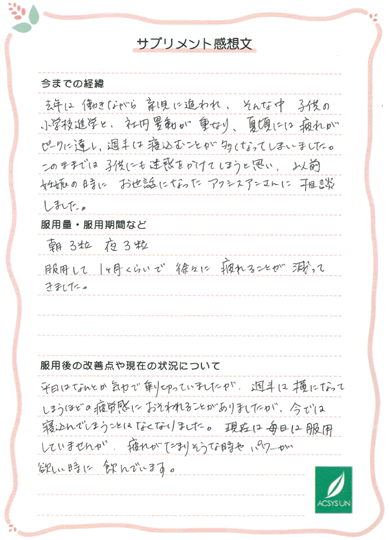 サプリメント感想文
今までの経緯
去年は 働きながら 育児に追われ、そんな中 子供の
小学校進学と、社内異動が 重なり、夏頃には 疲れが
ピークに達し、週末は 寝込むことが多くなってしまいました。
このままでは 子供にも 迷惑をかけてしまうと思い、以前
妊娠の時に お世話になった アクシスアンさんに 相談
しました。
服用量・服用期間など
朝 3粒 夜 3粒
服用して 1ヶ月くらいで 徐々に 疲れることが 減って
きました。
服用後の改善点や現在の状況について
平日はなんとか 気力で 乗り切っていましたが、週末は 横になって
しまうほどの 疲労感に おそわれることがありましたが、今では
寝込んでしまうことは なくなりました。現在は 毎日は 服用
していませんが、疲れがたまりそうな時や パワーが
欲しい時に 飲んでいます。
ACSYSUN